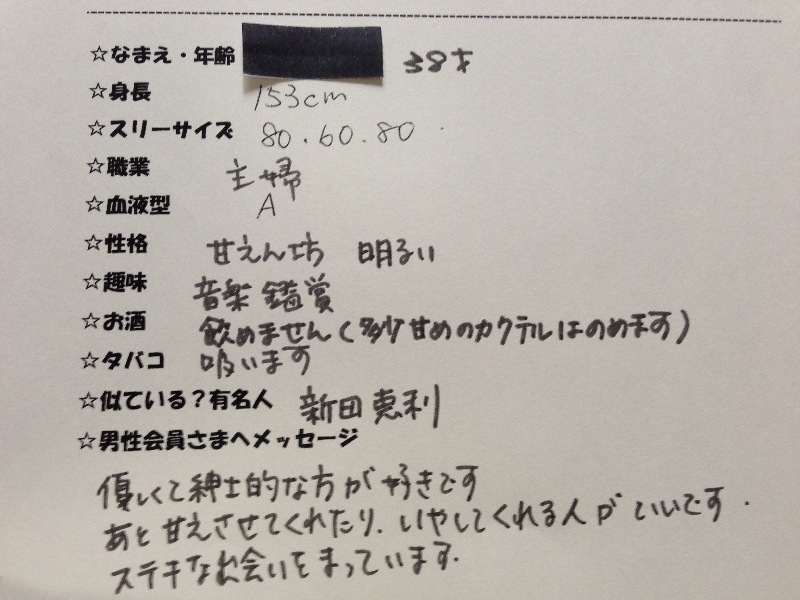 ☆なまえ・年齢 38才
☆身長 153cm
☆スリーサイズ 80.60.80
☆職業 主婦
☆血液型 A
☆性格 甘えん坊 明るい
☆趣味 音楽鑑賞
☆お酒 飲めません(多少甘めのカクテルはのめます)
☆タバコ 吸います
☆似ている?有名人 新田恵利
☆男性会員さまへメッセージ
優しくて紳士的な方が好きです
あと甘えさせてくれたり、いやしてくれる人がいいです.
ステキな出会いをまっています.